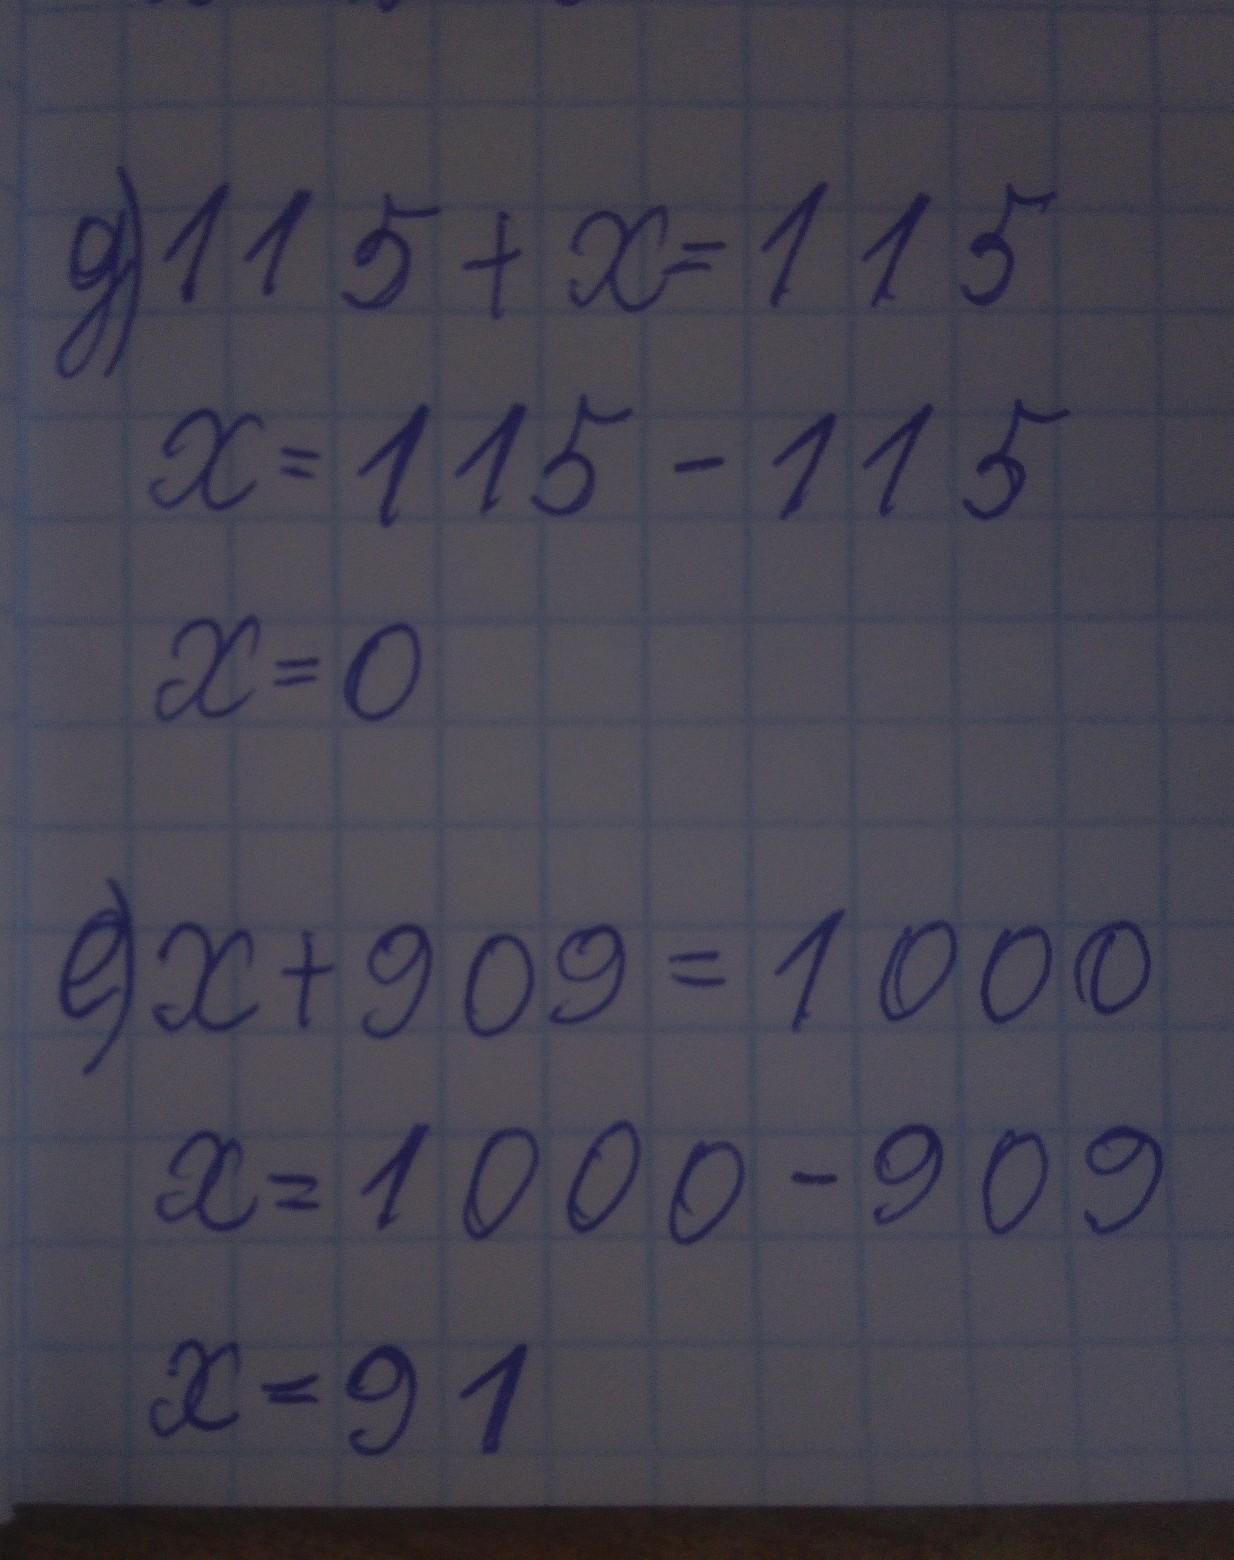 д) 115 + x = 115
x = 115 - 115
x = 0
е) x + 909 = 1000
x = 1000 - 909
x = 91